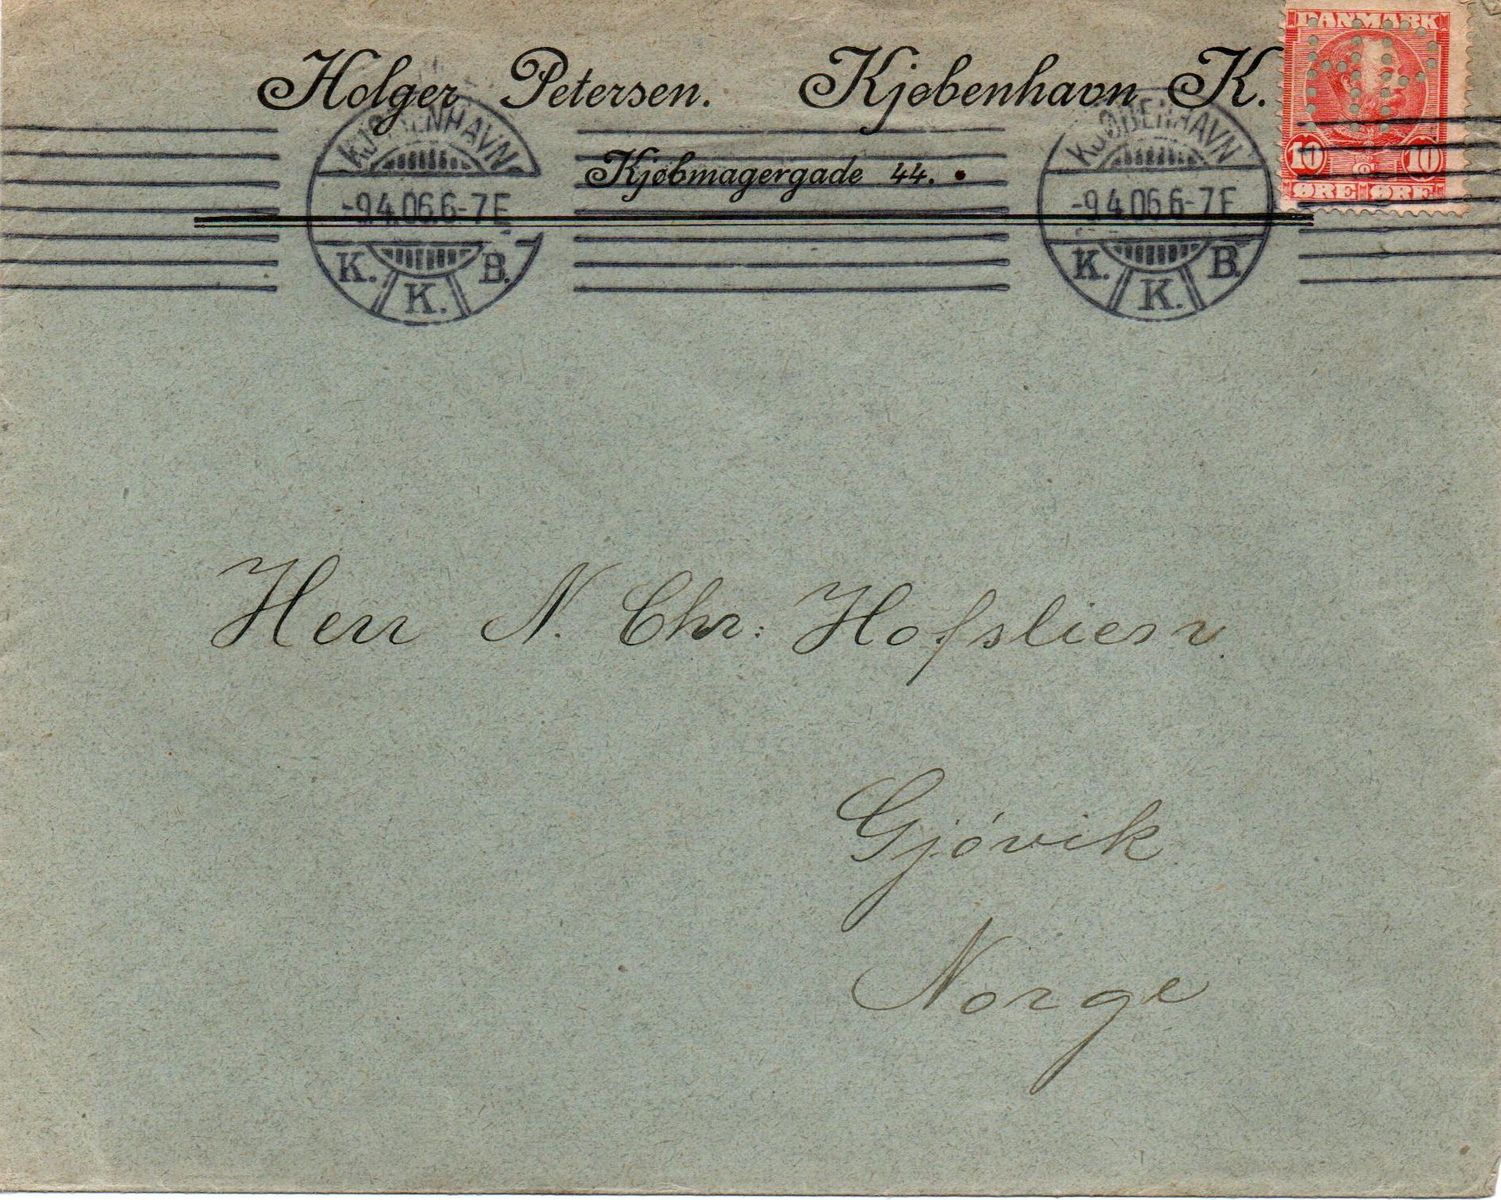 Holger Petersen. Kjøbenhavn K.
DANMARK
10 10
ØRE ØRE
KJØBENHAVN
-9.4.06.6-7E
K. K. B.
KJØBENHAVN
-9.4.06.6-7E
K. K. B.
Kjøbmagergade 44.
Herr N. Chr: Hofslien
Gjóvik
Norge